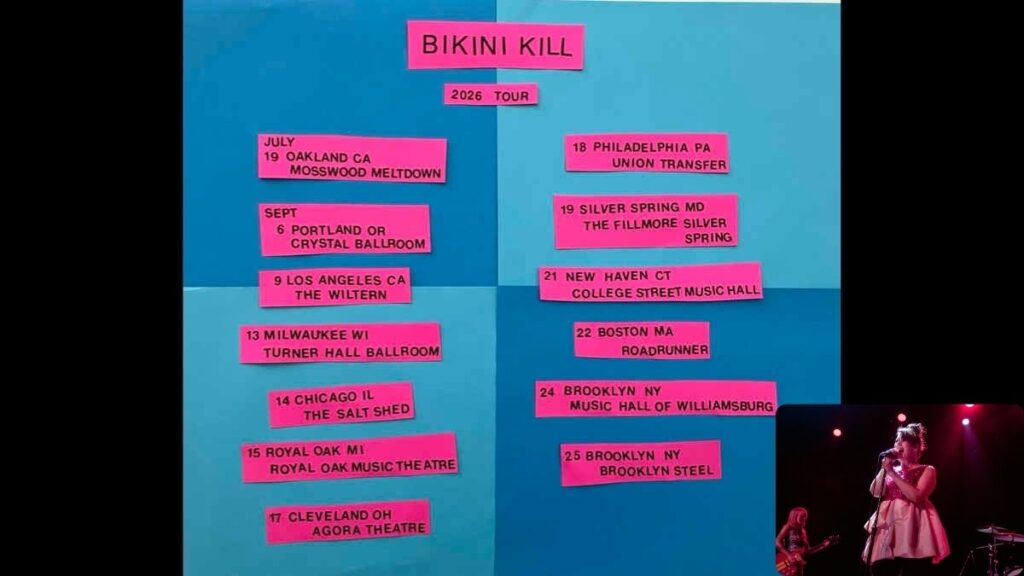 BIKINI KILL
2026 TOUR
JULY
19 OAKLAND CA
MOSSWOOD MELTDOWN
SEPT
6 PORTLAND OR
CRYSTAL BALLROOM
9 LOS ANGELES CA
THE WILTERN
13 MILWAUKEE WI
TURNER HALL BALLROOM
14 CHICAGO IL
THE SALT SHED
15 ROYAL OAK MI
ROYAL OAK MUSIC THEATRE
17 CLEVELAND OH
AGORA THEATRE
18 PHILADELPHIA PA
UNION TRANSFER
19 SILVER SPRING MD
THE FILLMORE SILVER
SPRING
21 NEW HAVEN CT
COLLEGE STREET MUSIC HALL
22 BOSTON MA
ROADRUNNER
24 BROOKLYN NY
MUSIC HALL OF WILLIAMSBURG
25 BROOKLYN NY
BROOKLYN STEEL